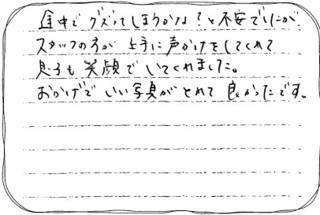 途中でグズってしまうかな?と不安でしたが、
スタッフの方が上手に声かけをしてくれて
息子も笑顔でいてくれました。
おかげでいい写真がとれて良かったです。